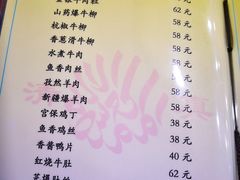 62 元
山药爆牛柳 58 元
杭椒牛柳 58 元
香葱滑牛柳 58 元
水煮牛肉 58 元
鱼香肉丝
孜然羊肉 58 元
新疆爆羊肉 58 元
宫保鸡丁 38 元
鱼香鸡丝 38 元
香酱鸭片 38 元
红烧牛肚 40 元
62 元